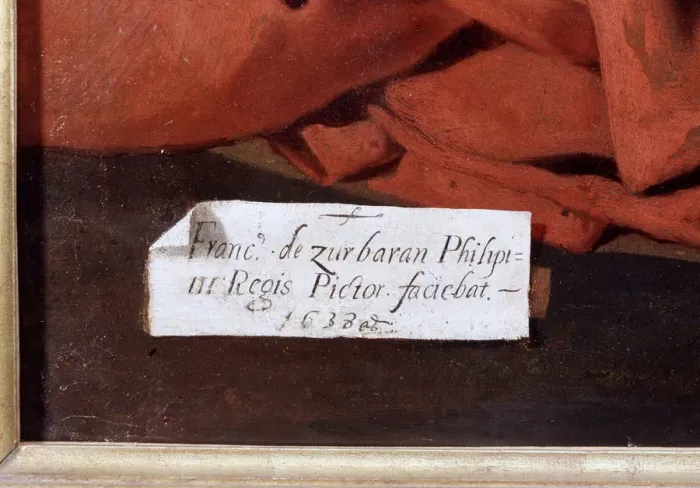 Francº. de zurbaran Philipi=
IIII Regis Pictor. faciebat. —
1638